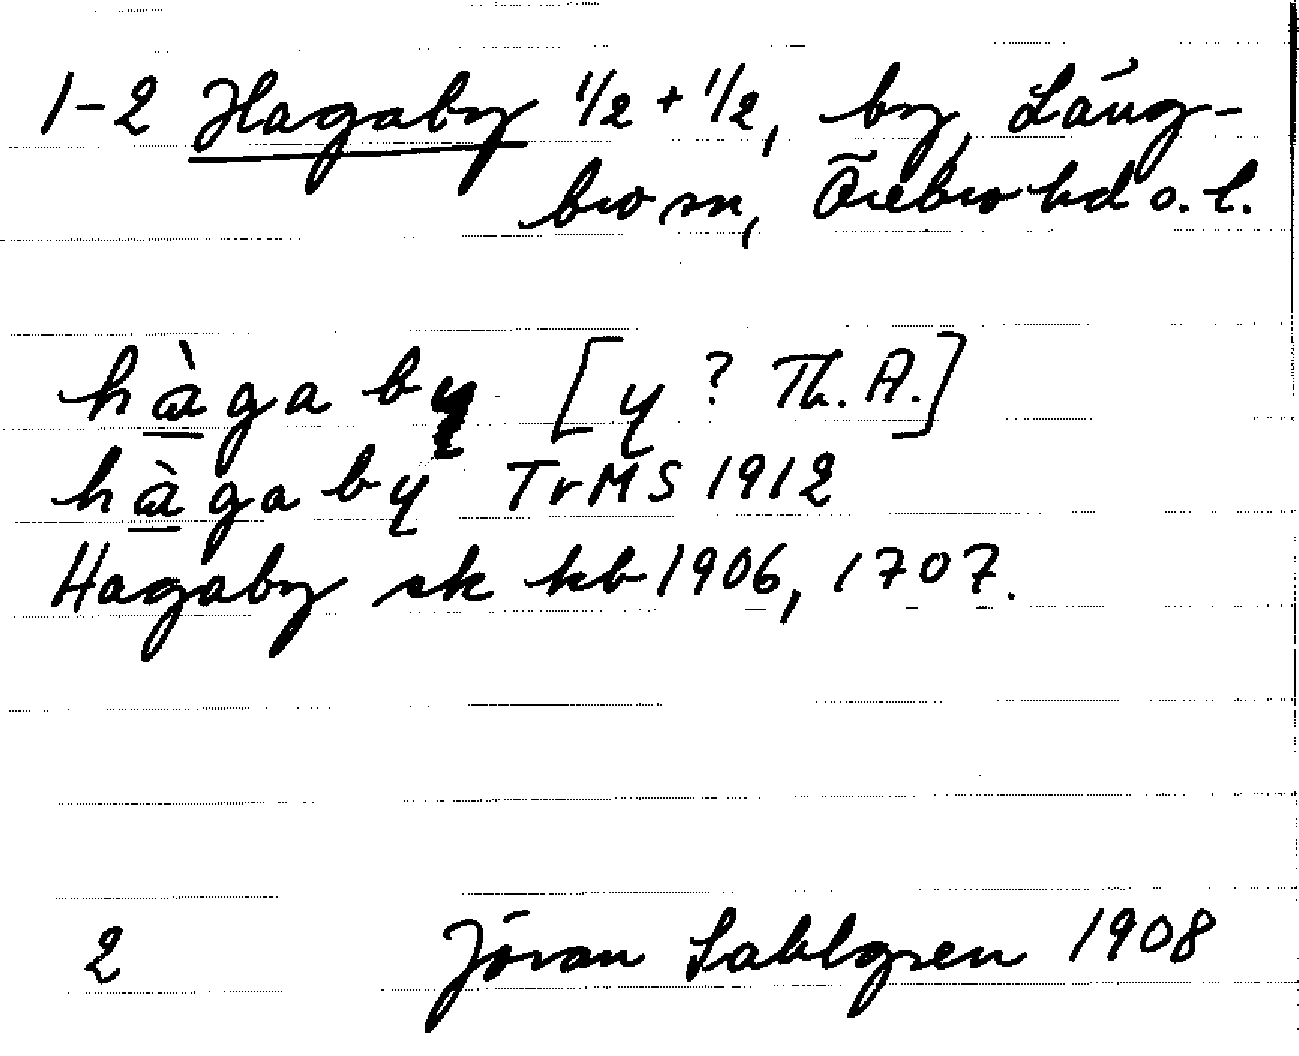 1-2 Hagaby 1/2 + 1/2, by, Läng-
bro sn, Örebro hd ö. l.
hàgaby [y ? Th. A.]
hàgaby TrMS 1912
Hagaby sk kb 1906, 1707.
2 Jöran Sahlgren 1908